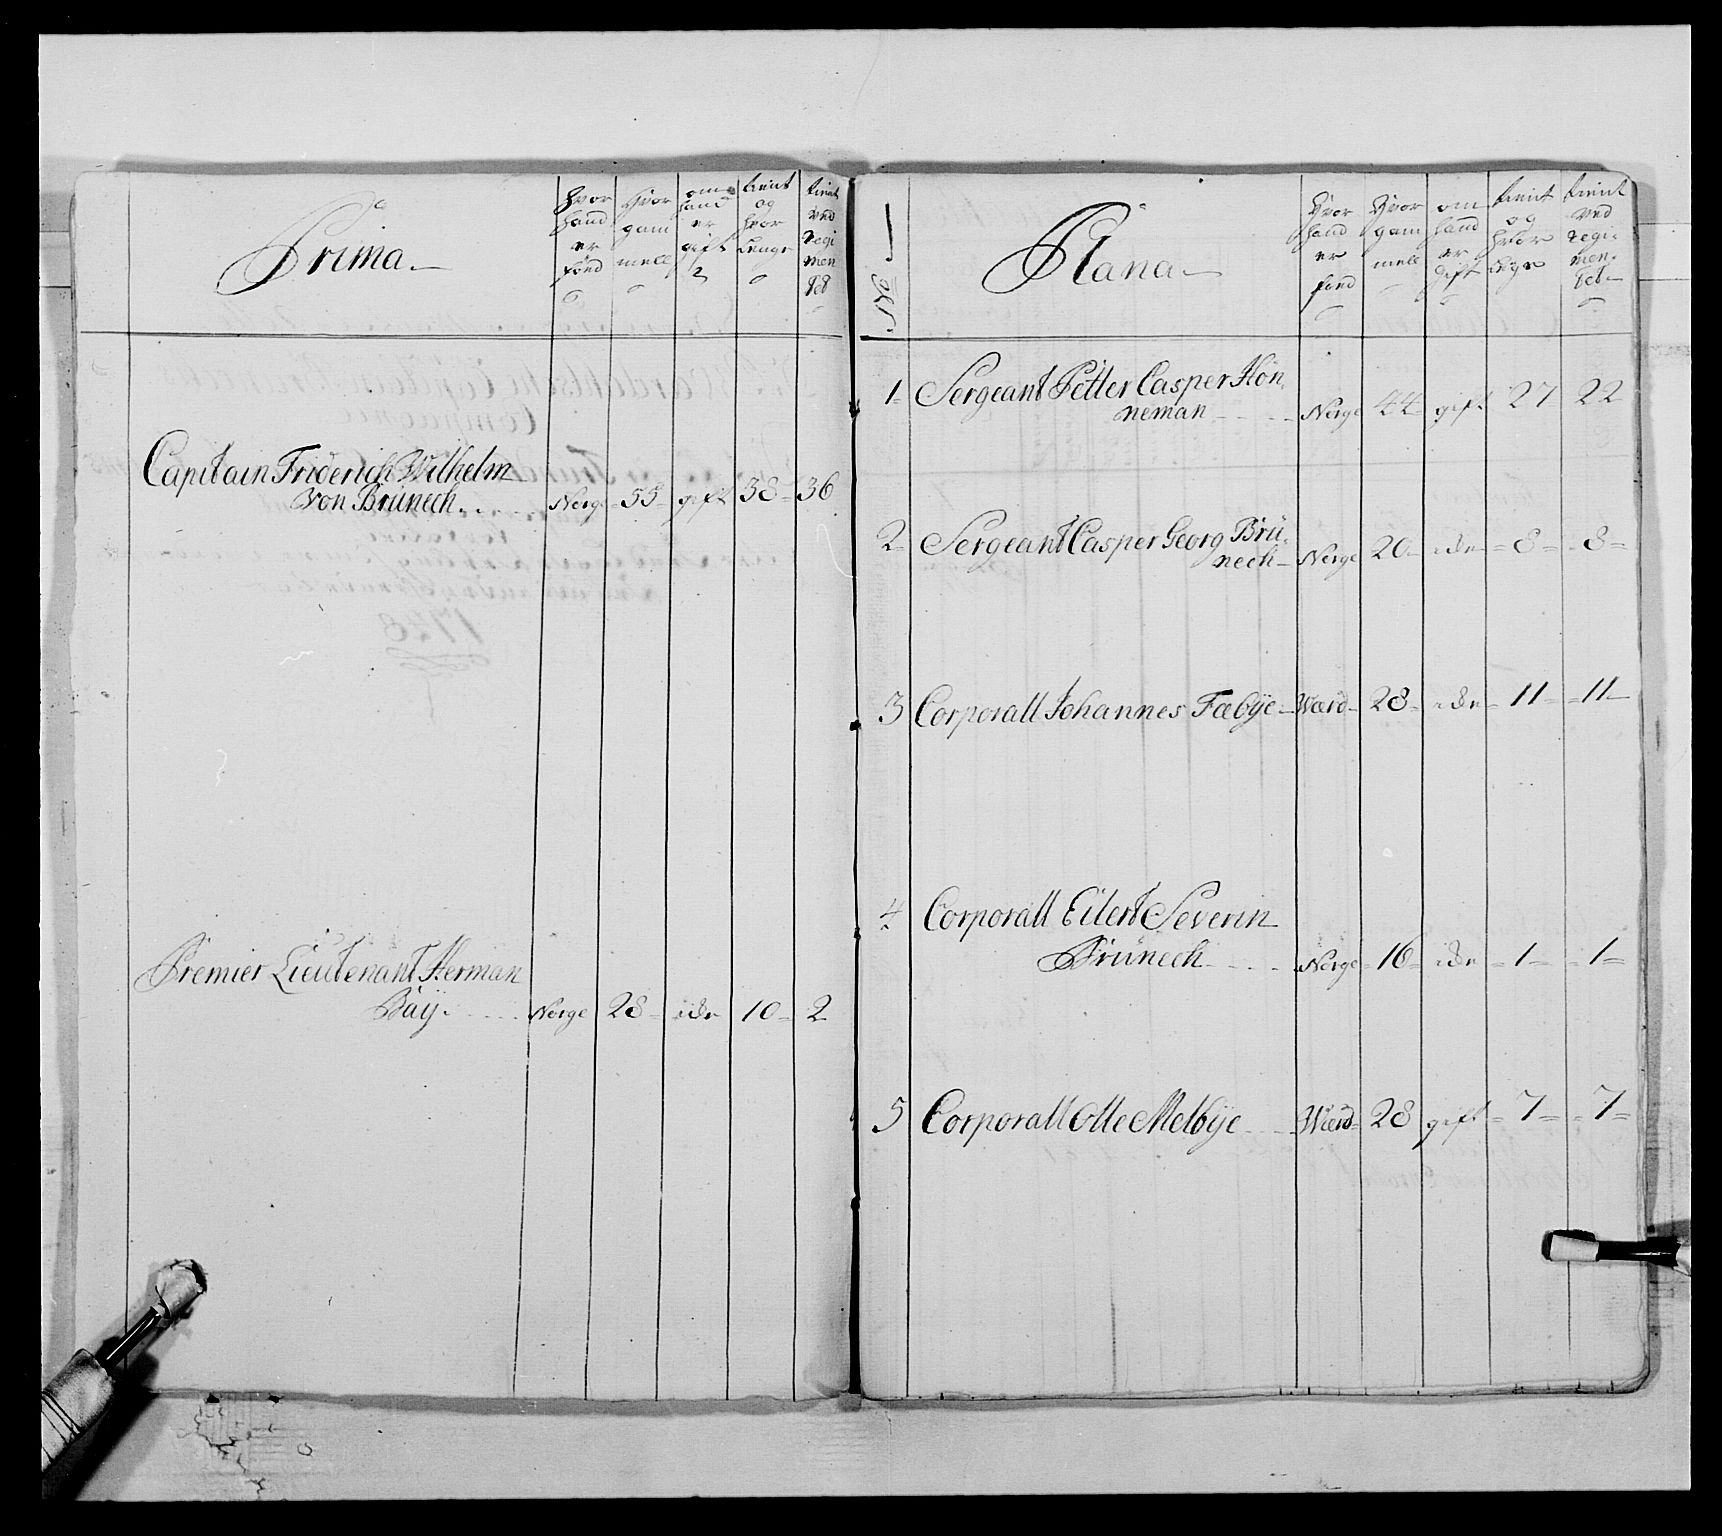 Prima
Hvor hand er fød
Hvor gammell
om hand er gift
tient og hvor Lenge
tient ved Regimentet
Capitain Friderich Wilhelm
von Brünech. Norge 55 gift 38 36
Premier Lieutenant Herman
Baÿ. Norge 28 idn 10 2
No
Plana
Hvor hand er fød
Hvor gammell
om hand er gift
tient og hvor
tient ved Regimentet
1 Sergeant Petter Casper Hon
neman Norge 44 gift 27 22
2 Sergeant Casper Georg Brü
nech Norge 20 idn 8 8
3 Corporall Johannes Fæbÿe Wærd 28 idn 11 11
4 Corporall Eilert Severin
Brünech Norge 16 idn 1 1
5 Corporall Olle Melbÿe Wærd 28 gift 7 7